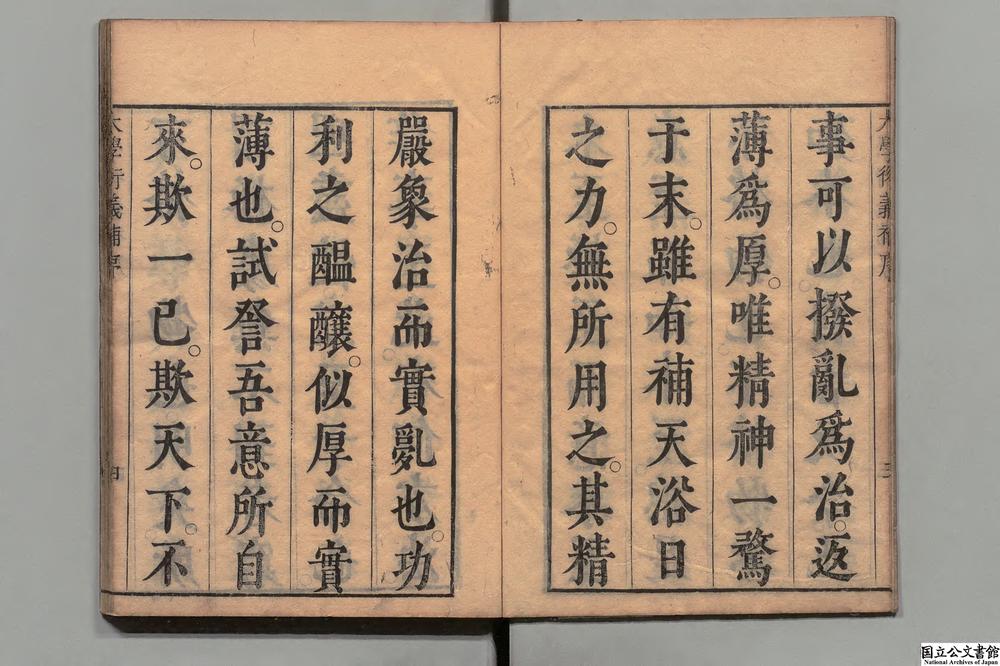 事可以撥亂爲治。返
薄爲厚。唯精神一騖
于末。雖有補天浴日
之力。無所用之。其精
嚴象治而實亂也。功
利之醞釀。似厚而實
薄也。試詧吾意所自
來。欺一已。欺天下。不
大學衍義補序
國立公文書館
National Archives of Japan